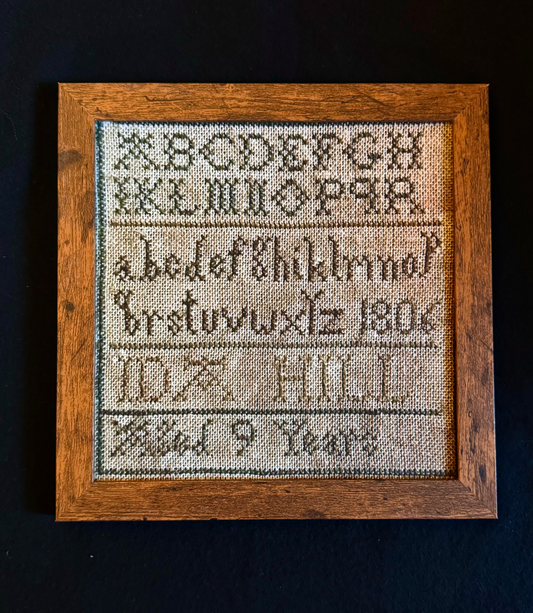 ABCDEFGH
IKLMNOPqR
abcdefghiklmnop
qrstuvwxyz 1806
IDA HILL
Aged 9 Years